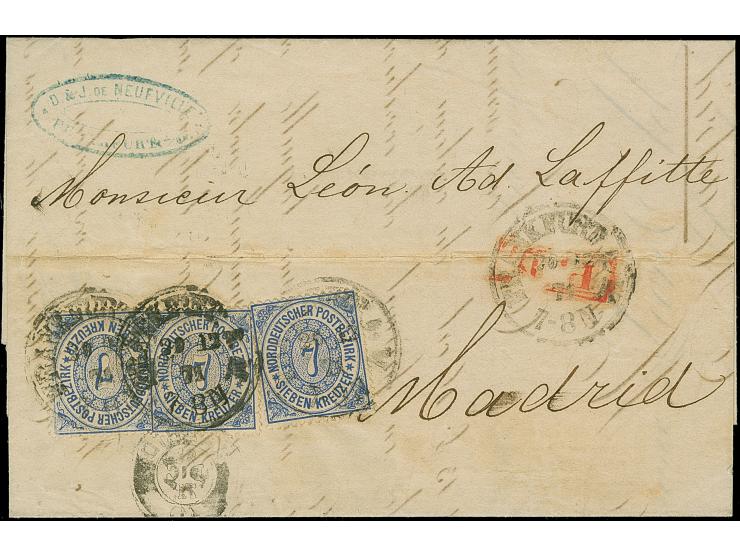 D & J. DE NEUFVILLE
Monsieur Léon. Ad. Laffitte
FRANKFURT
P.D.
7-8 N
Madrid
NORDDEUTSCHER POSTBEZIRK
7
SIEBEN KREUZER
NORDDEUTSCHER POSTBEZIRK
7
SIEBEN KREUZER
NORDDEUTSCHER POSTBEZIRK
7
SIEBEN KREUZER
8 N